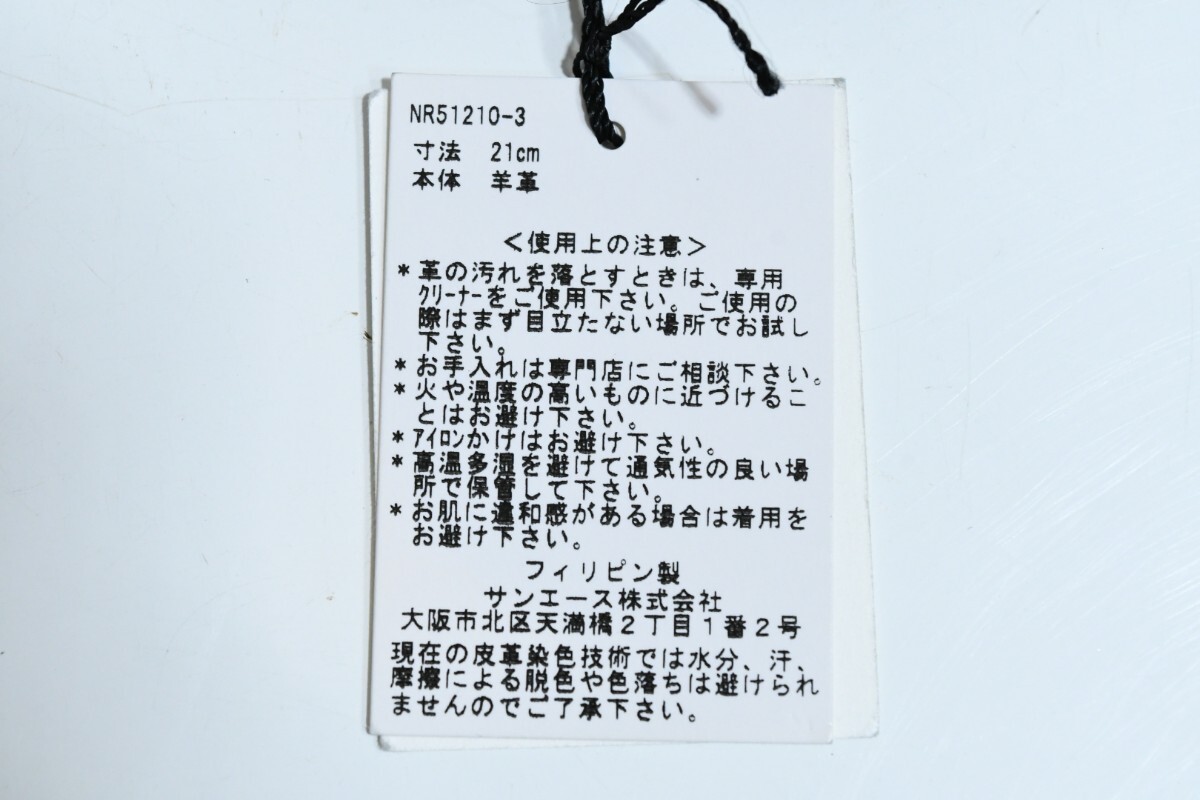 NR51210-3
寸法 21cm
本体 羊革
＜使用上の注意＞
＊革の汚れを落とすときは、専用
ｸﾘｰﾅｰをご使用下さい。ご使用の
際はまず目立たない場所でお試し
下さい。
＊お手入れは専門店にご相談下さい。
＊火や温度の高いものに近づけるこ
とはお避け下さい。
＊ｱｲﾛﾝかけはお避け下さい。
＊高温多湿を避けて通気性の良い場
所で保管して下さい。
＊お肌に違和感がある場合は着用を
お避け下さい。
フィリピン製
サンエース株式会社
大阪市北区天満橋２丁目１番２号
現在の皮革染色技術では水分、汗、
摩擦による脱色や色落ちは避けられ
ませんのでご了承下さい。